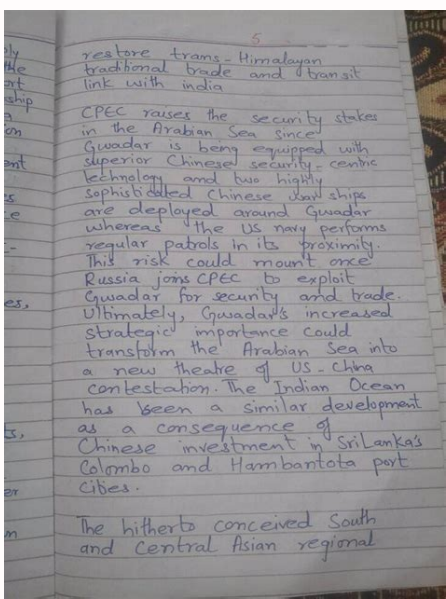 5
restore trans-Himalayan
traditional trade and transit
link with india
CPEC raises the security stakes
in the Arabian Sea since
Gwadar is being equipped with
superior Chinese security-centric
technology and two highly
sophisticated Chinese war ships
are deployed around Gwadar
whereas the US navy performs
regular patrols in its proximity.
This risk could mount once
Russia joins CPEC to exploit
Gwadar for security and trade.
Ultimately, Gwadar's increased
strategic importance could
transform the Arabian Sea into
a new theatre of US-China
contestation. The Indian Ocean
has been a similar development
as a consequence of
Chinese investment in SriLanka's
Colombo and Hambantota port
cities.
The hitherto conceived South
and Central Asian regional